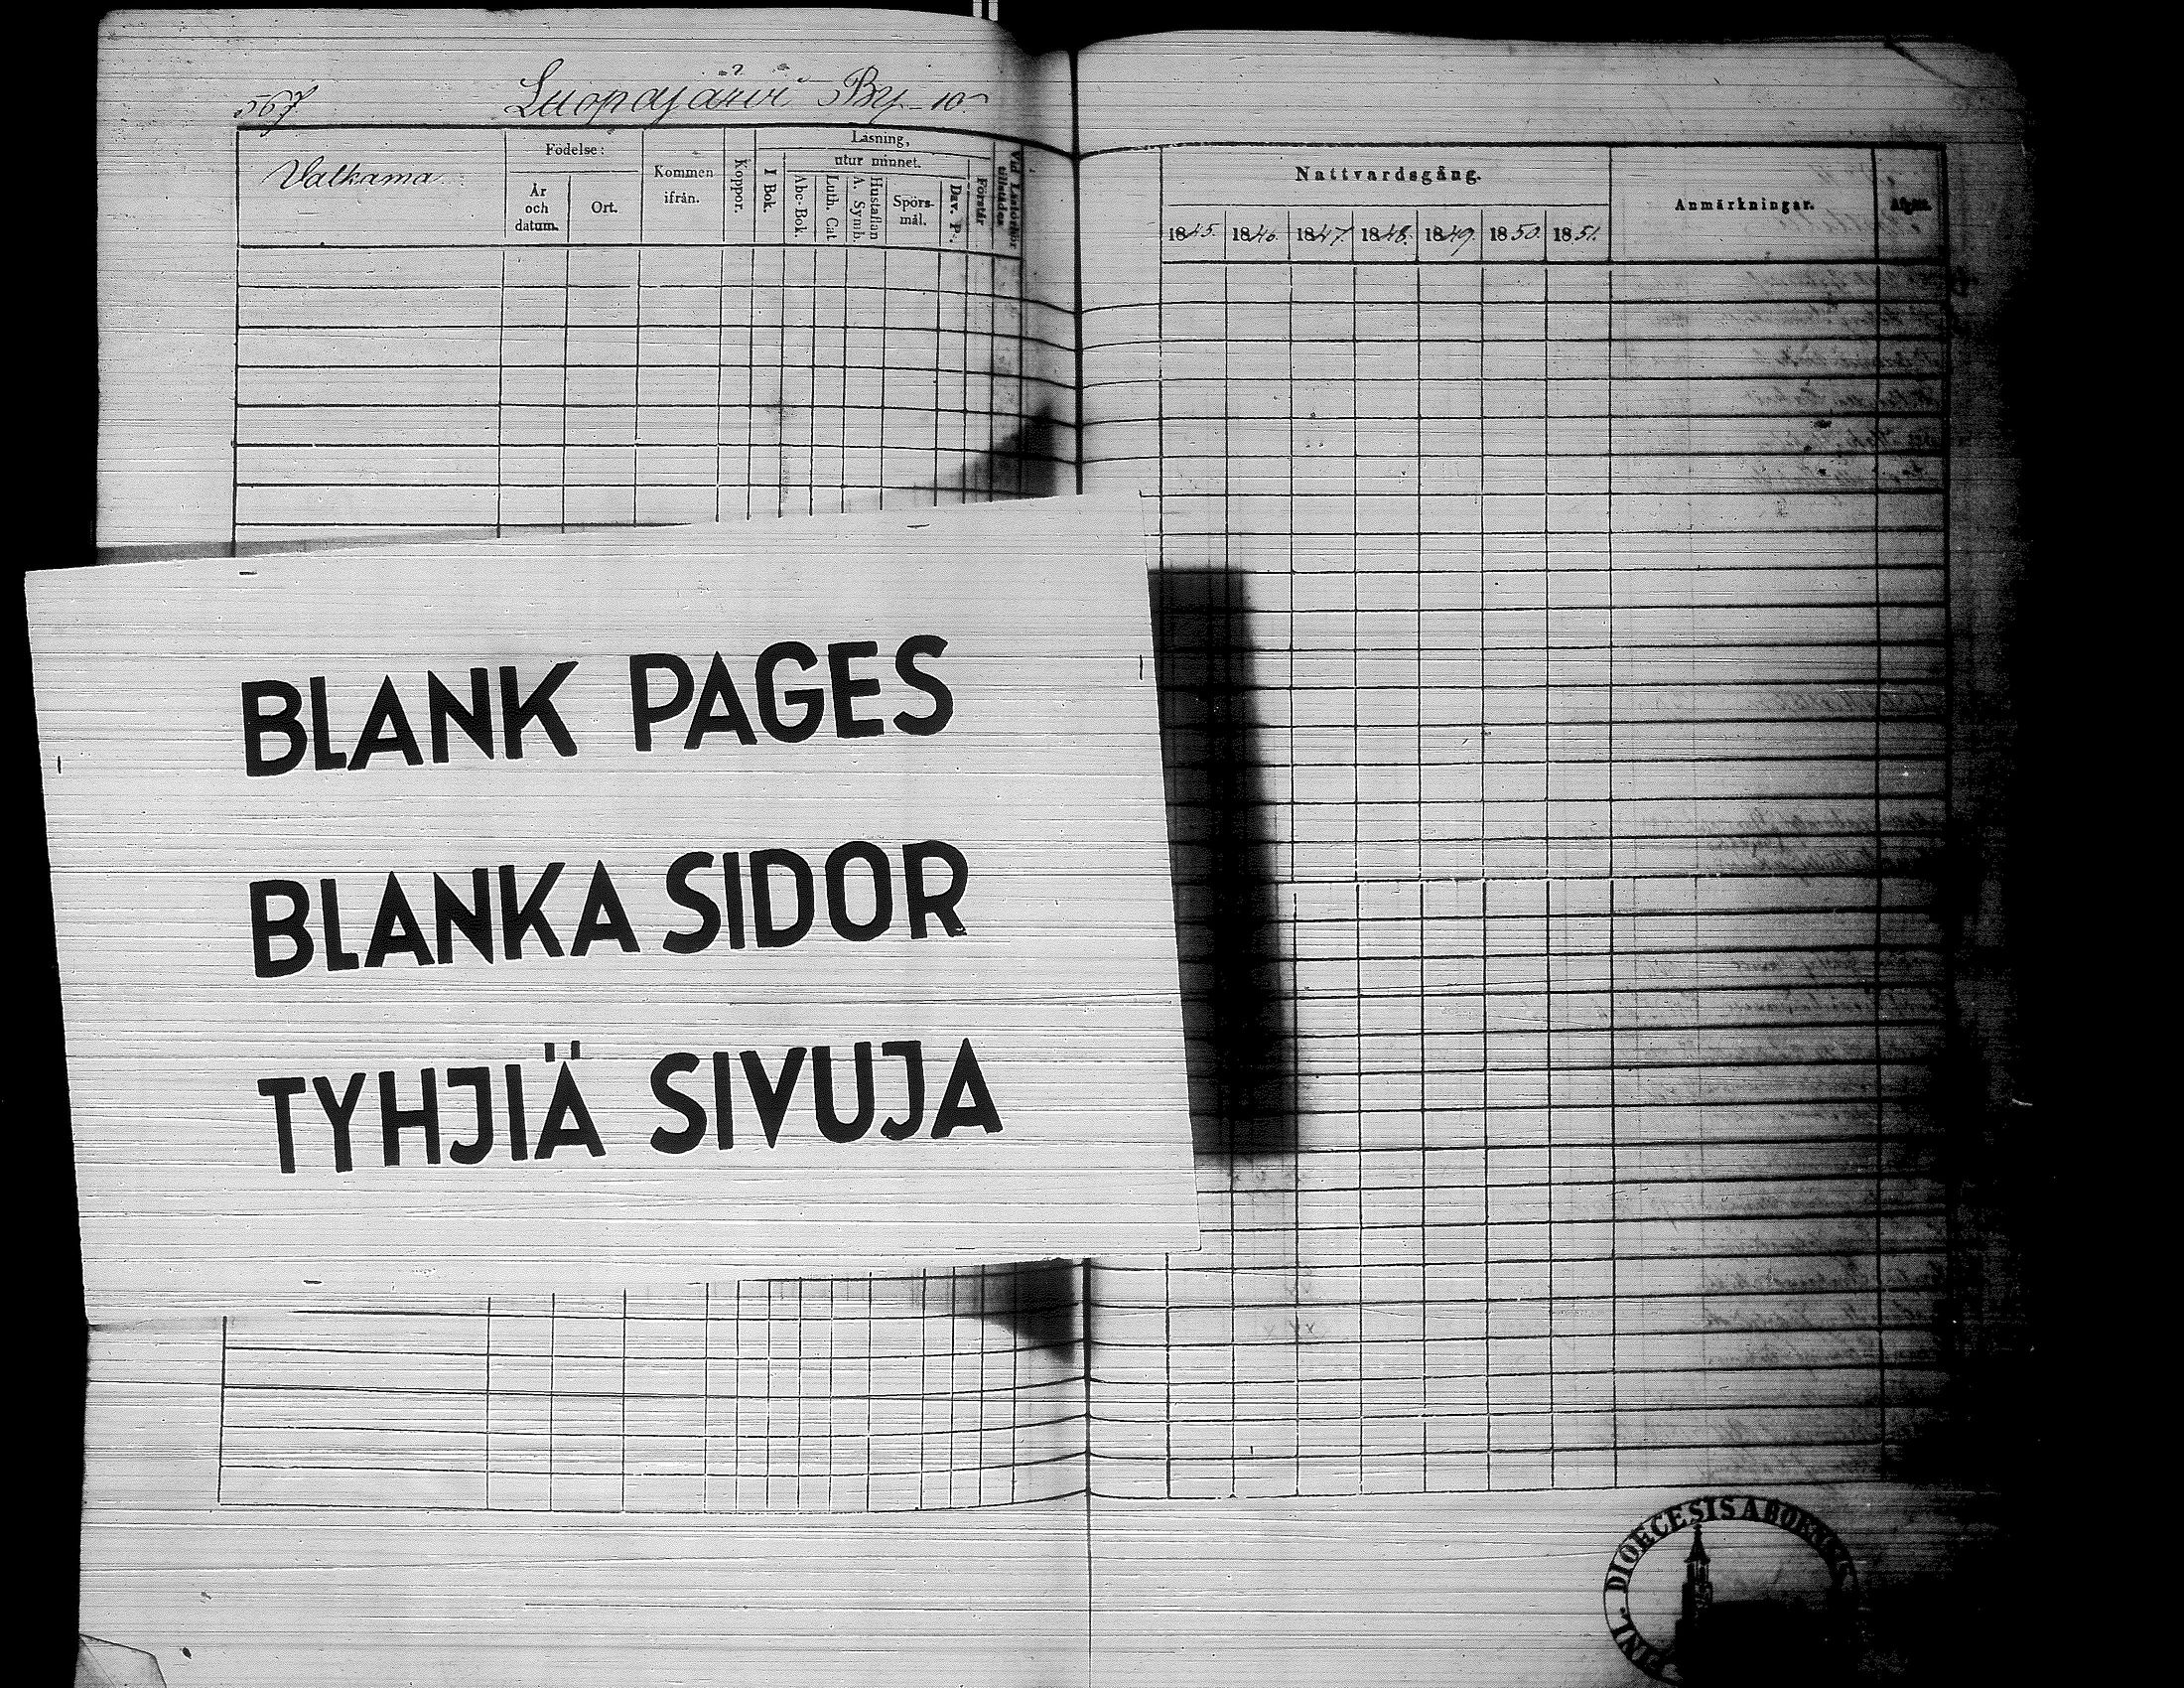 567 Luopajärvi By 10
Valkama
Födelse:
År
och
datum.
Ort.
Kommen
ifrån.
Koppor.
Läsning,
I Bok.
utur minnet.
Abc-Bok.
Luth. Cat.
Hustaflan
A. Symb.
Spörs-
mål.
Dav. Ps.
Förstår
Nattvardsgång.
1845. 1846. 1847. 1848. 1849. 1850. 1851.
Anmärkningar.
BLANK PAGES
BLANKA SIDOR
TYHJIÄ SIVUJA
DIOECESIS ABOENSIS